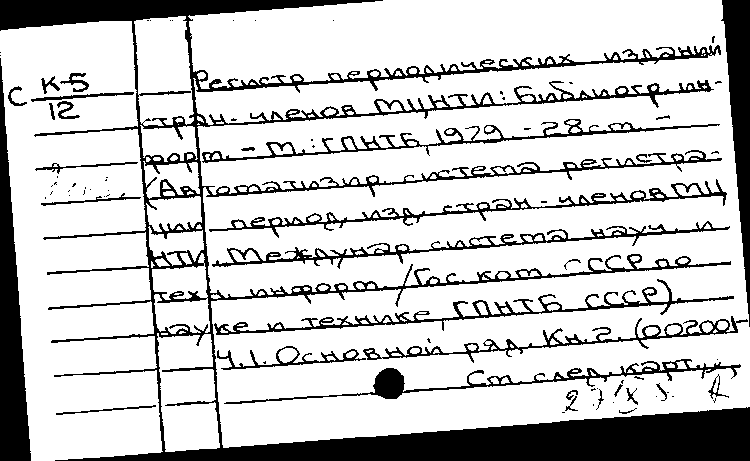 С К-5
12
Регистр периодических изданий
стран-членов МЦНТИ: Библиогр. ин-
форм. - М.: ГПНТБ, 1979. - 28 см. -
(Автоматизир. система регистра-
ции период. изд. стран-членов МЦ
НТИ. Междунар. система науч. и
техн. информ. / Гос. ком. СССР по
науке и технике, ГПНТБ СССР).
Ч.1. Основной ряд. Кн. 2. (002001-
См. след. карт.